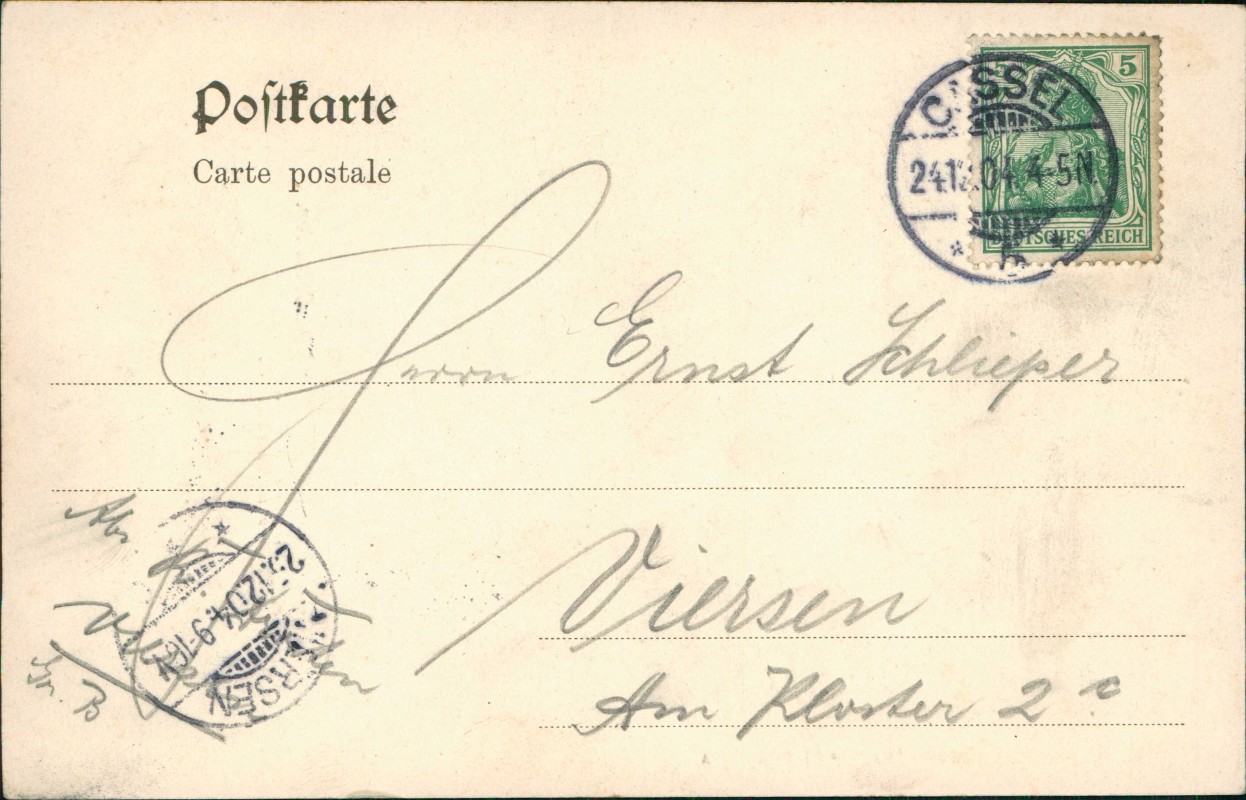 Postkarte
Carte postale
5
DEUTSCHES REICH
CASSEL
24.12.04. 4-5N.
Herrn Ernst Schlieper
Viersen
Am Kloster 2c
Abs.
VIERSEN
25.12.04. 9-10V